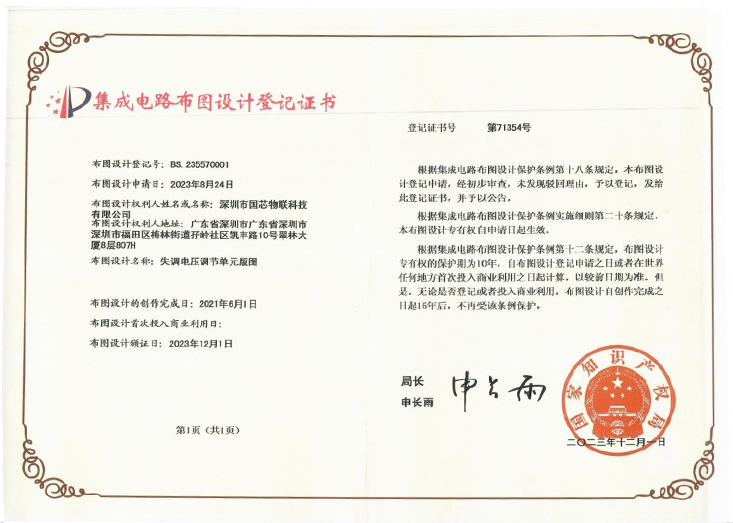 集成电路布图设计登记证书
布图设计登记号：BS. 235570001
布图设计申请日：2023年8月24日
布图设计权利人姓名或名称：深圳市国芯物联科技
有限公司
布图设计权利人地址：广东省深圳市广东省深圳市
深圳市福田区梅林街道孖岭社区凯丰路10号翠林大
厦8层807H
布图设计名称：失调电压调节单元版图
布图设计的创作完成日：2021年6月1日
布图设计首次投入商业利用日：
布图设计颁证日：2023年12月1日
第1页（共1页）
登记证书号 第71354号
根据集成电路布图设计保护条例第十八条规定，本布图设
计登记申请，经初步审查，未发现驳回理由，予以登记，发给
此登记证书，并予以公告。
根据集成电路布图设计保护条例实施细则第二十条规定，
本布图设计专有权自申请日起生效。
根据集成电路布图设计保护条例第十二条规定，布图设计
专有权的保护期为10年，自布图设计登记申请之日或者在世界
任何地方首次投入商业利用之日起计算，以较前日期为准。但
是，无论是否登记或者投入商业利用，布图设计自创作完成之
日起15年后，不再受该条例保护。
局长
申长雨
申长雨
国家知识产权局
二〇二三年十二月一日